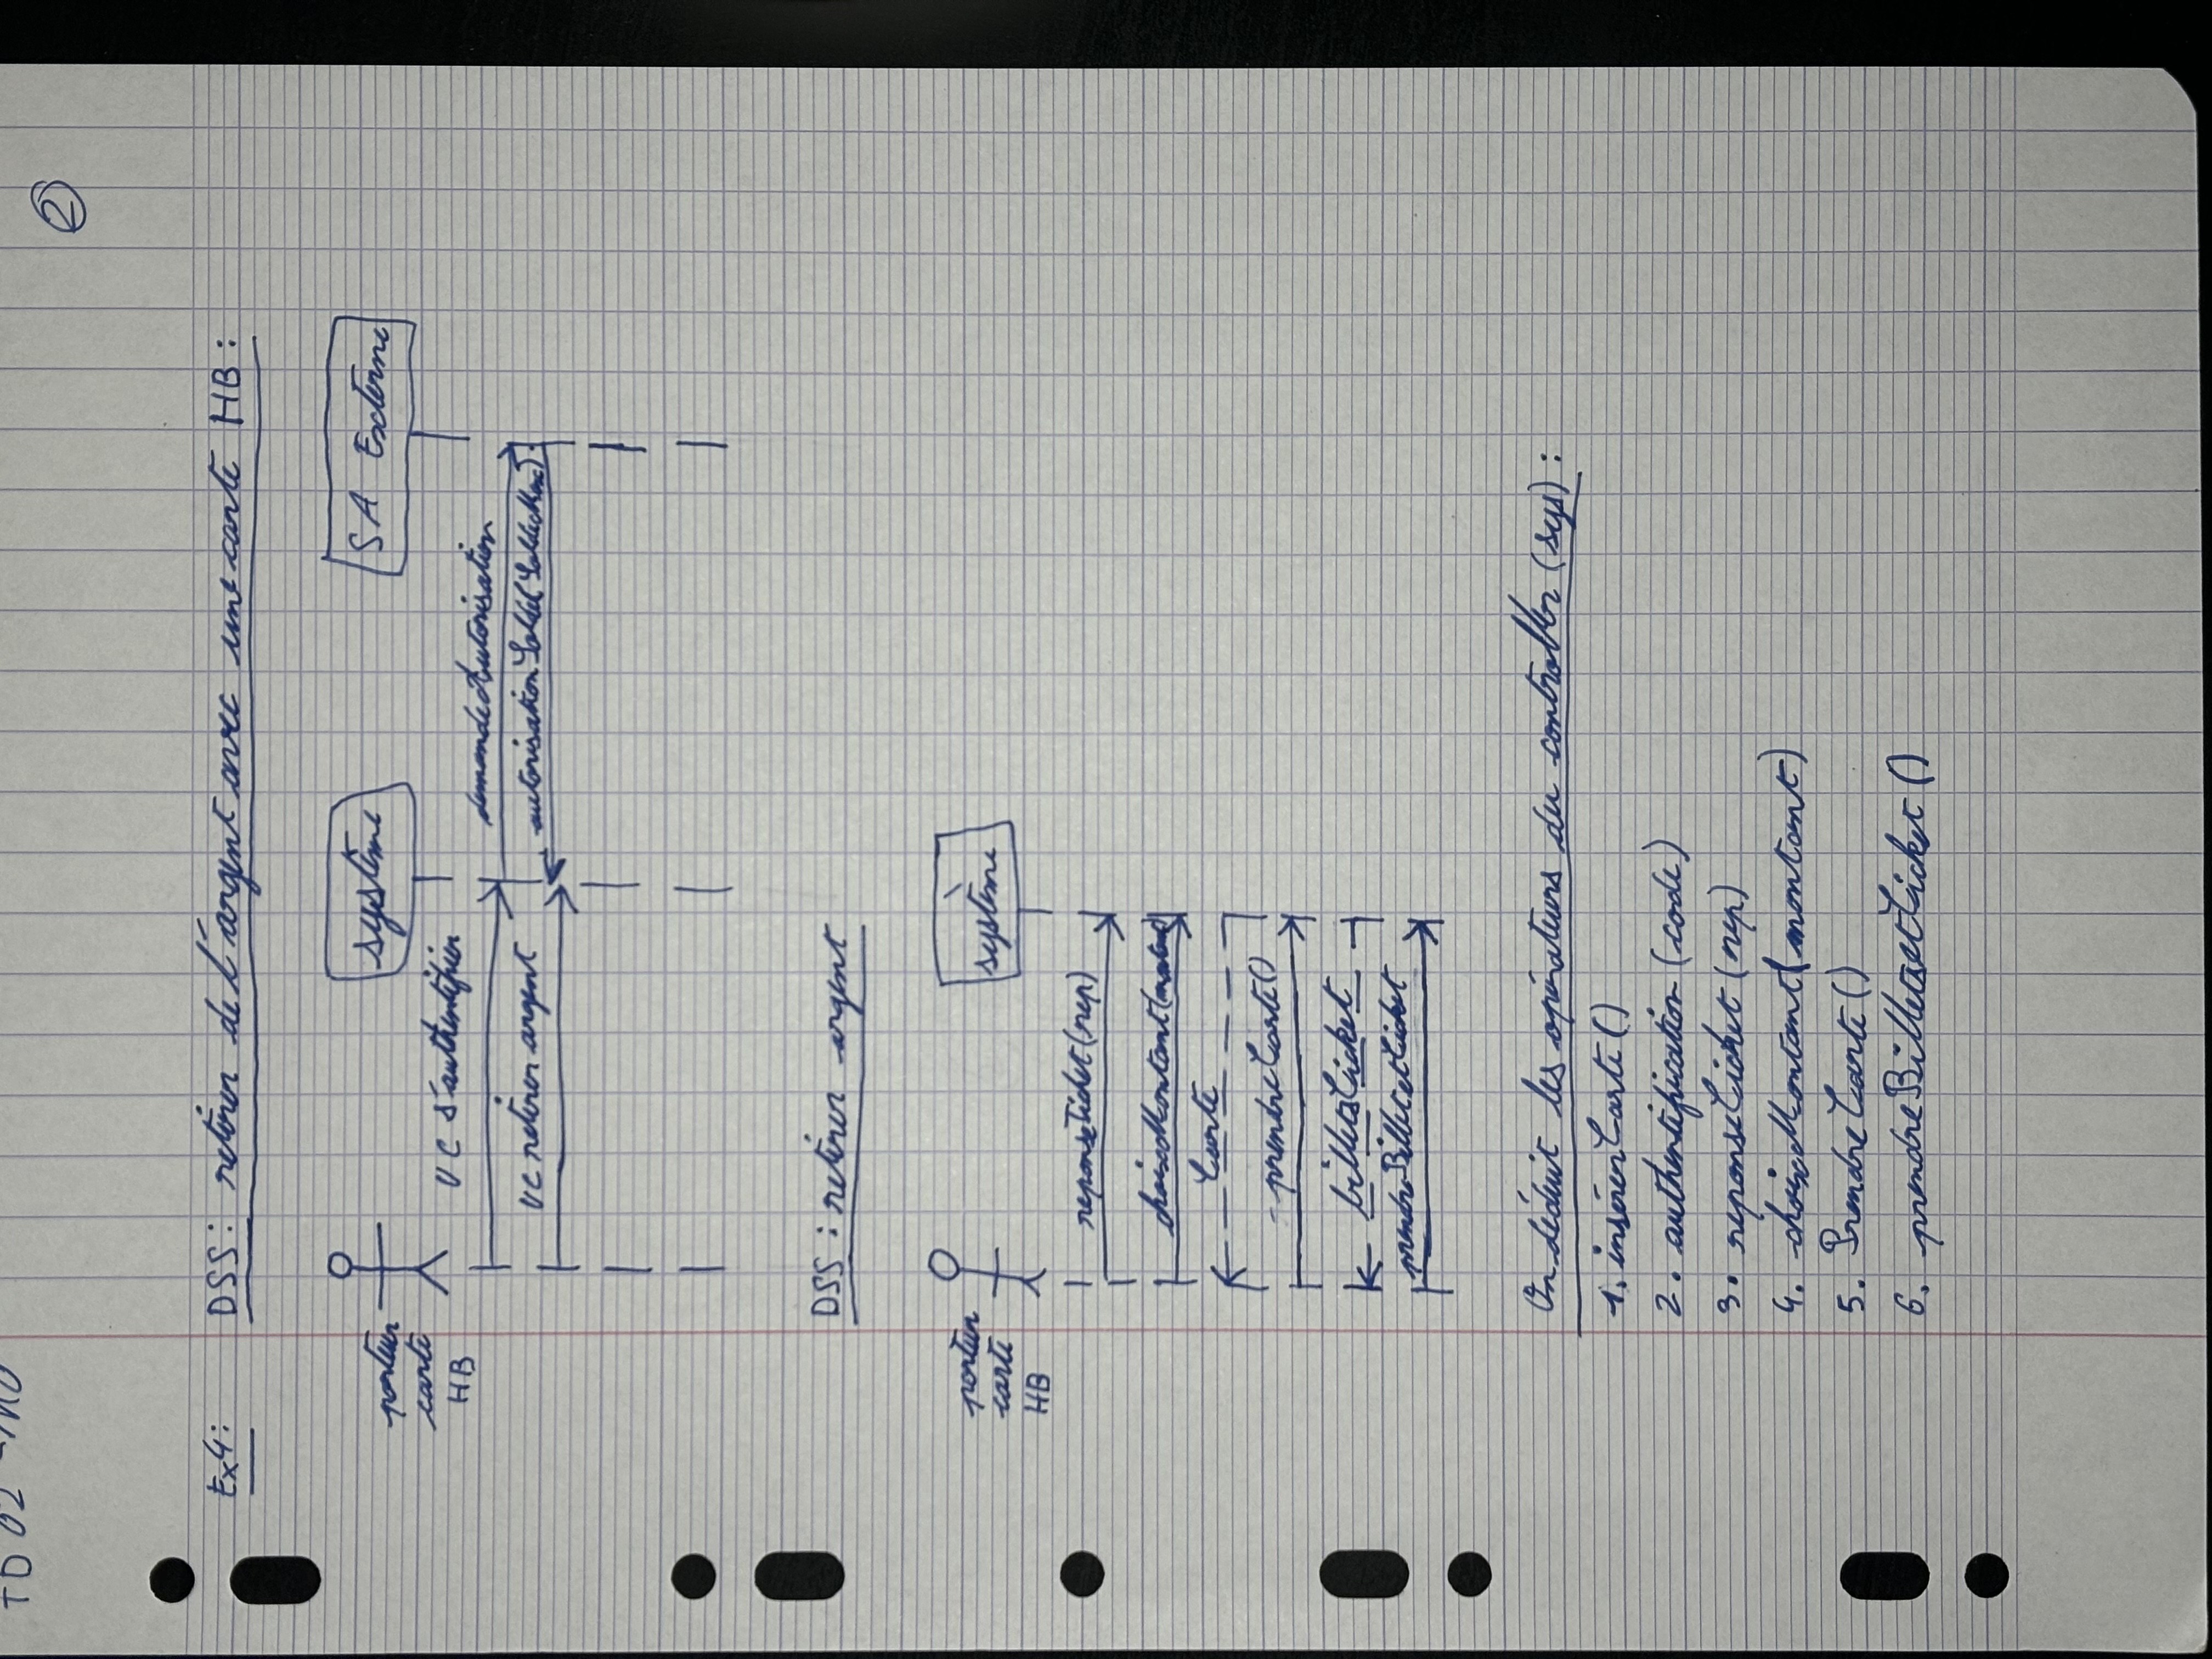 TD 02
2
Ex4: DSS: retirer de l'argent avec une carte HB:
porteur
carte
HB
système
SA Externe
UC s'authentifier
demandeAutorisation
UC retirer argent
autorisationSolde(SoldeMax)
DSS : retirer argent
porteur
carte
HB
système
reponseTicket(rep)
choixMontant(montant)
Carte
prendreCarte()
billetsTicket
prendreBilletetTicket
On déduit les opérateurs du controller (sys) :
1. insérerCarte()
2. authentification (code)
3. reponseTicket (rep)
4. choixMontant(montant)
5. PrendreCarte()
6. prendreBilletsetTicket ()